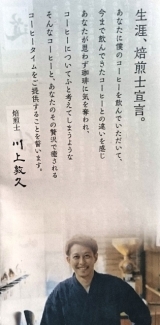 生涯、焙煎士宣言。
あなたに僕のコーヒーを飲んでいただいて、
今まで飲んできたコーヒーとの違いを感じ
あなたが思わず珈琲に気を奪われ、
コーヒーについてふと考えてしまうような
そんなコーヒーと、あなたのその贅沢で癒される
コーヒータイムをご提供することを誓います。
焙煎士 川上敦久